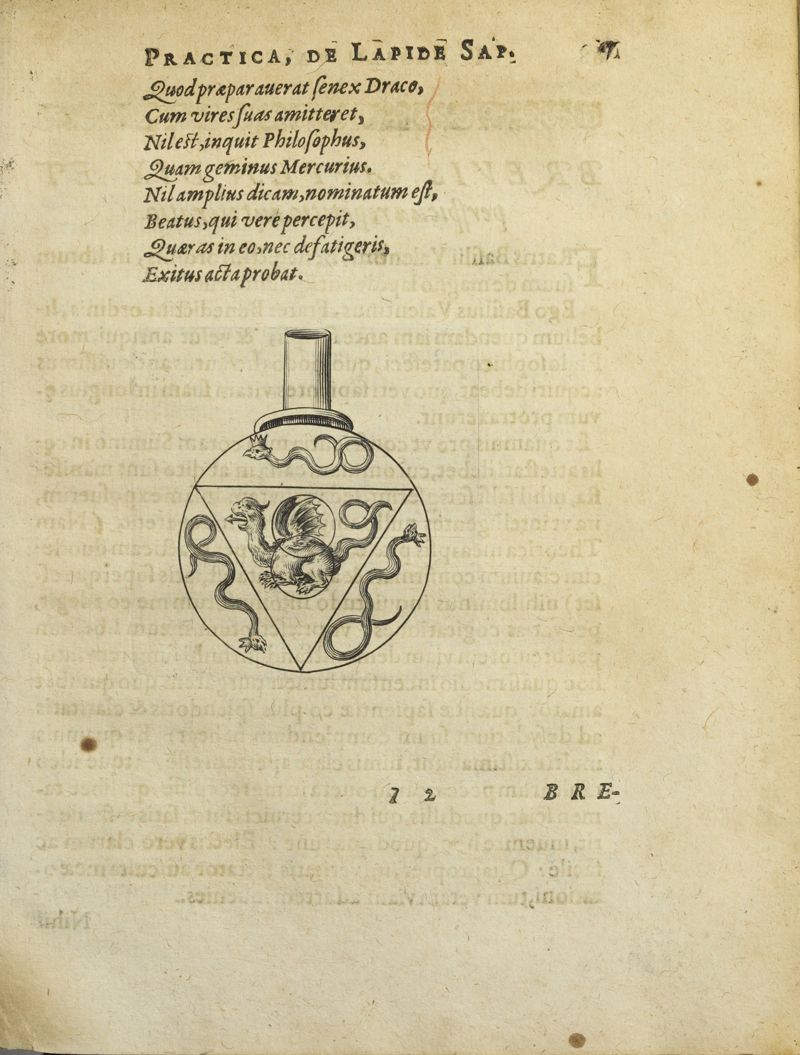 PRACTICA, DE LAPIDE SAP.
Quod præparauerat ſenex Draco,
Cum vires ſuas amitteret,
Nil eſt, inquit Philoſophus,
Quam geminus Mercurius.
Nil amplius dicam, nominatum eſt,
Beatus, qui vere percepit,
Quæras in eo, nec defatigeris,
Exitus acta probat.
1 2 BRE-